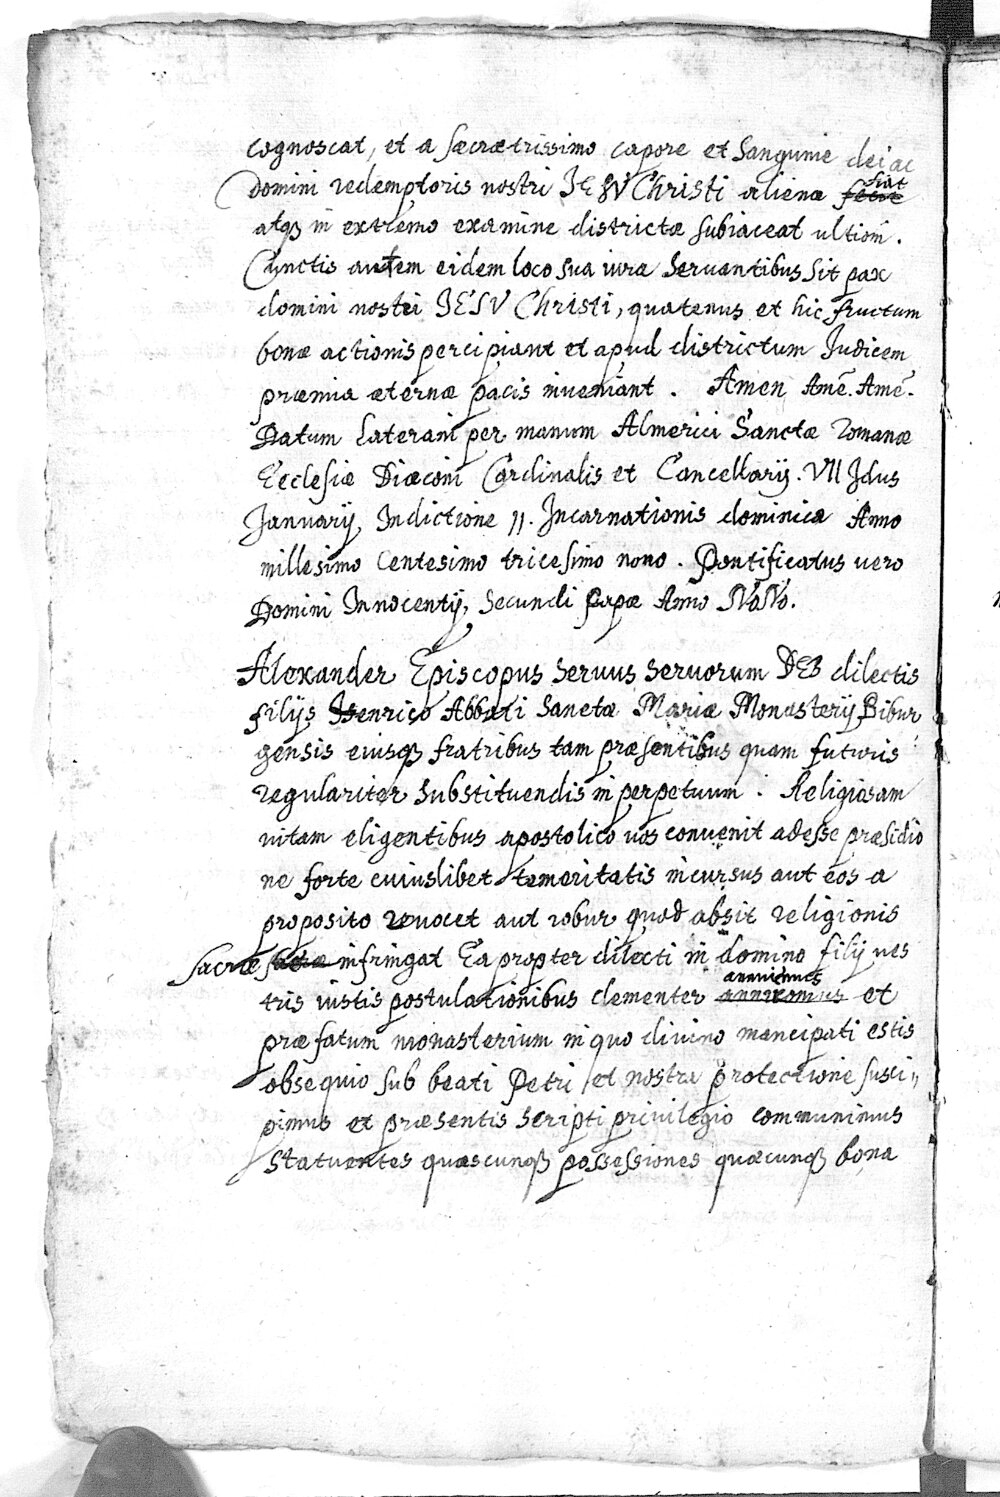 cognoscat, et a sacratissimo capore et Sanguine dei ac
Domini redemptoris nostri JESV Christi aliena fiat
atqȝ in extremo examine districtæ subiaceat ultioni.
Cunctis autem eidem loco sua iura servantibus sit pax
domini nostri JESV Christi, quatenus et hic fructum
bonæ actionis percipiant et apud districtum Judicem
præmia æternæ pacis inveniant. Amen Amē. Amē.
Datum Laterani per manum Almerici Sanctæ Romanæ
Ecclesiæ Diaconi Cardinalis et Cancellarij. VII Idus
Januarij, Indictione 11. Incarnationis dominica Anno
millesimo Centesimo tricesimo nono. Pontificatus vero
Domini Innocentij, Secundi Papæ Anno NoNo.
Alexander Episcopus Servus Servorum DEI dilectis
filijs Henrico Abbati Sanctæ Mariæ Monasterij Bibur
gensis eiusqȝ fratribus tam præsentibus quam futuris
regulariter substituendis in perpetuum. Religiosam
vitam eligentibus apostolico vos convenit adesse præsidio
ne forte cuiuslibet temeritatis incursus aut eos a
proposito revocet aut robur quod absit religionis
sacræ infringat Ea propter dilecti in domino filij ves
tris iustis postulationibus clementer annuimus et
præfatum monasterium in quo divino mancipati estis
obsequio sub beati Petri et nostra protectione susci„
pimus et præsentis scripti privilegio communimus
Statuentes quæscunqȝ possessiones quæcunqȝ bona